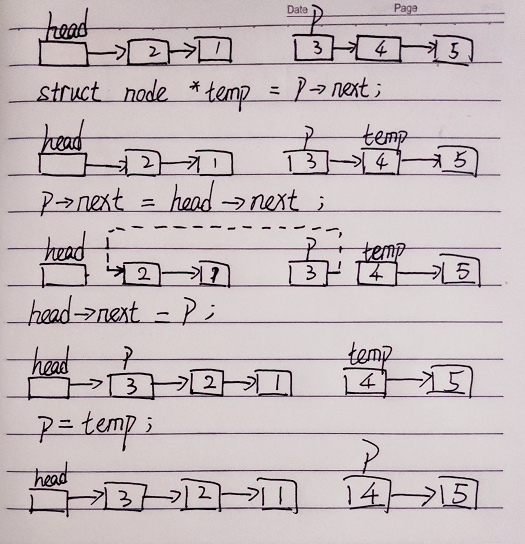 Date Page
head P
2 1 3 4 5
struct node *temp = P→next;
head P temp
2 1 3 4 5
P→next = head→next ;
head P temp
2 1 3 4 5
head→next = P;
head P temp
3 2 1 4 5
P = temp;
head P
3 2 1 4 5